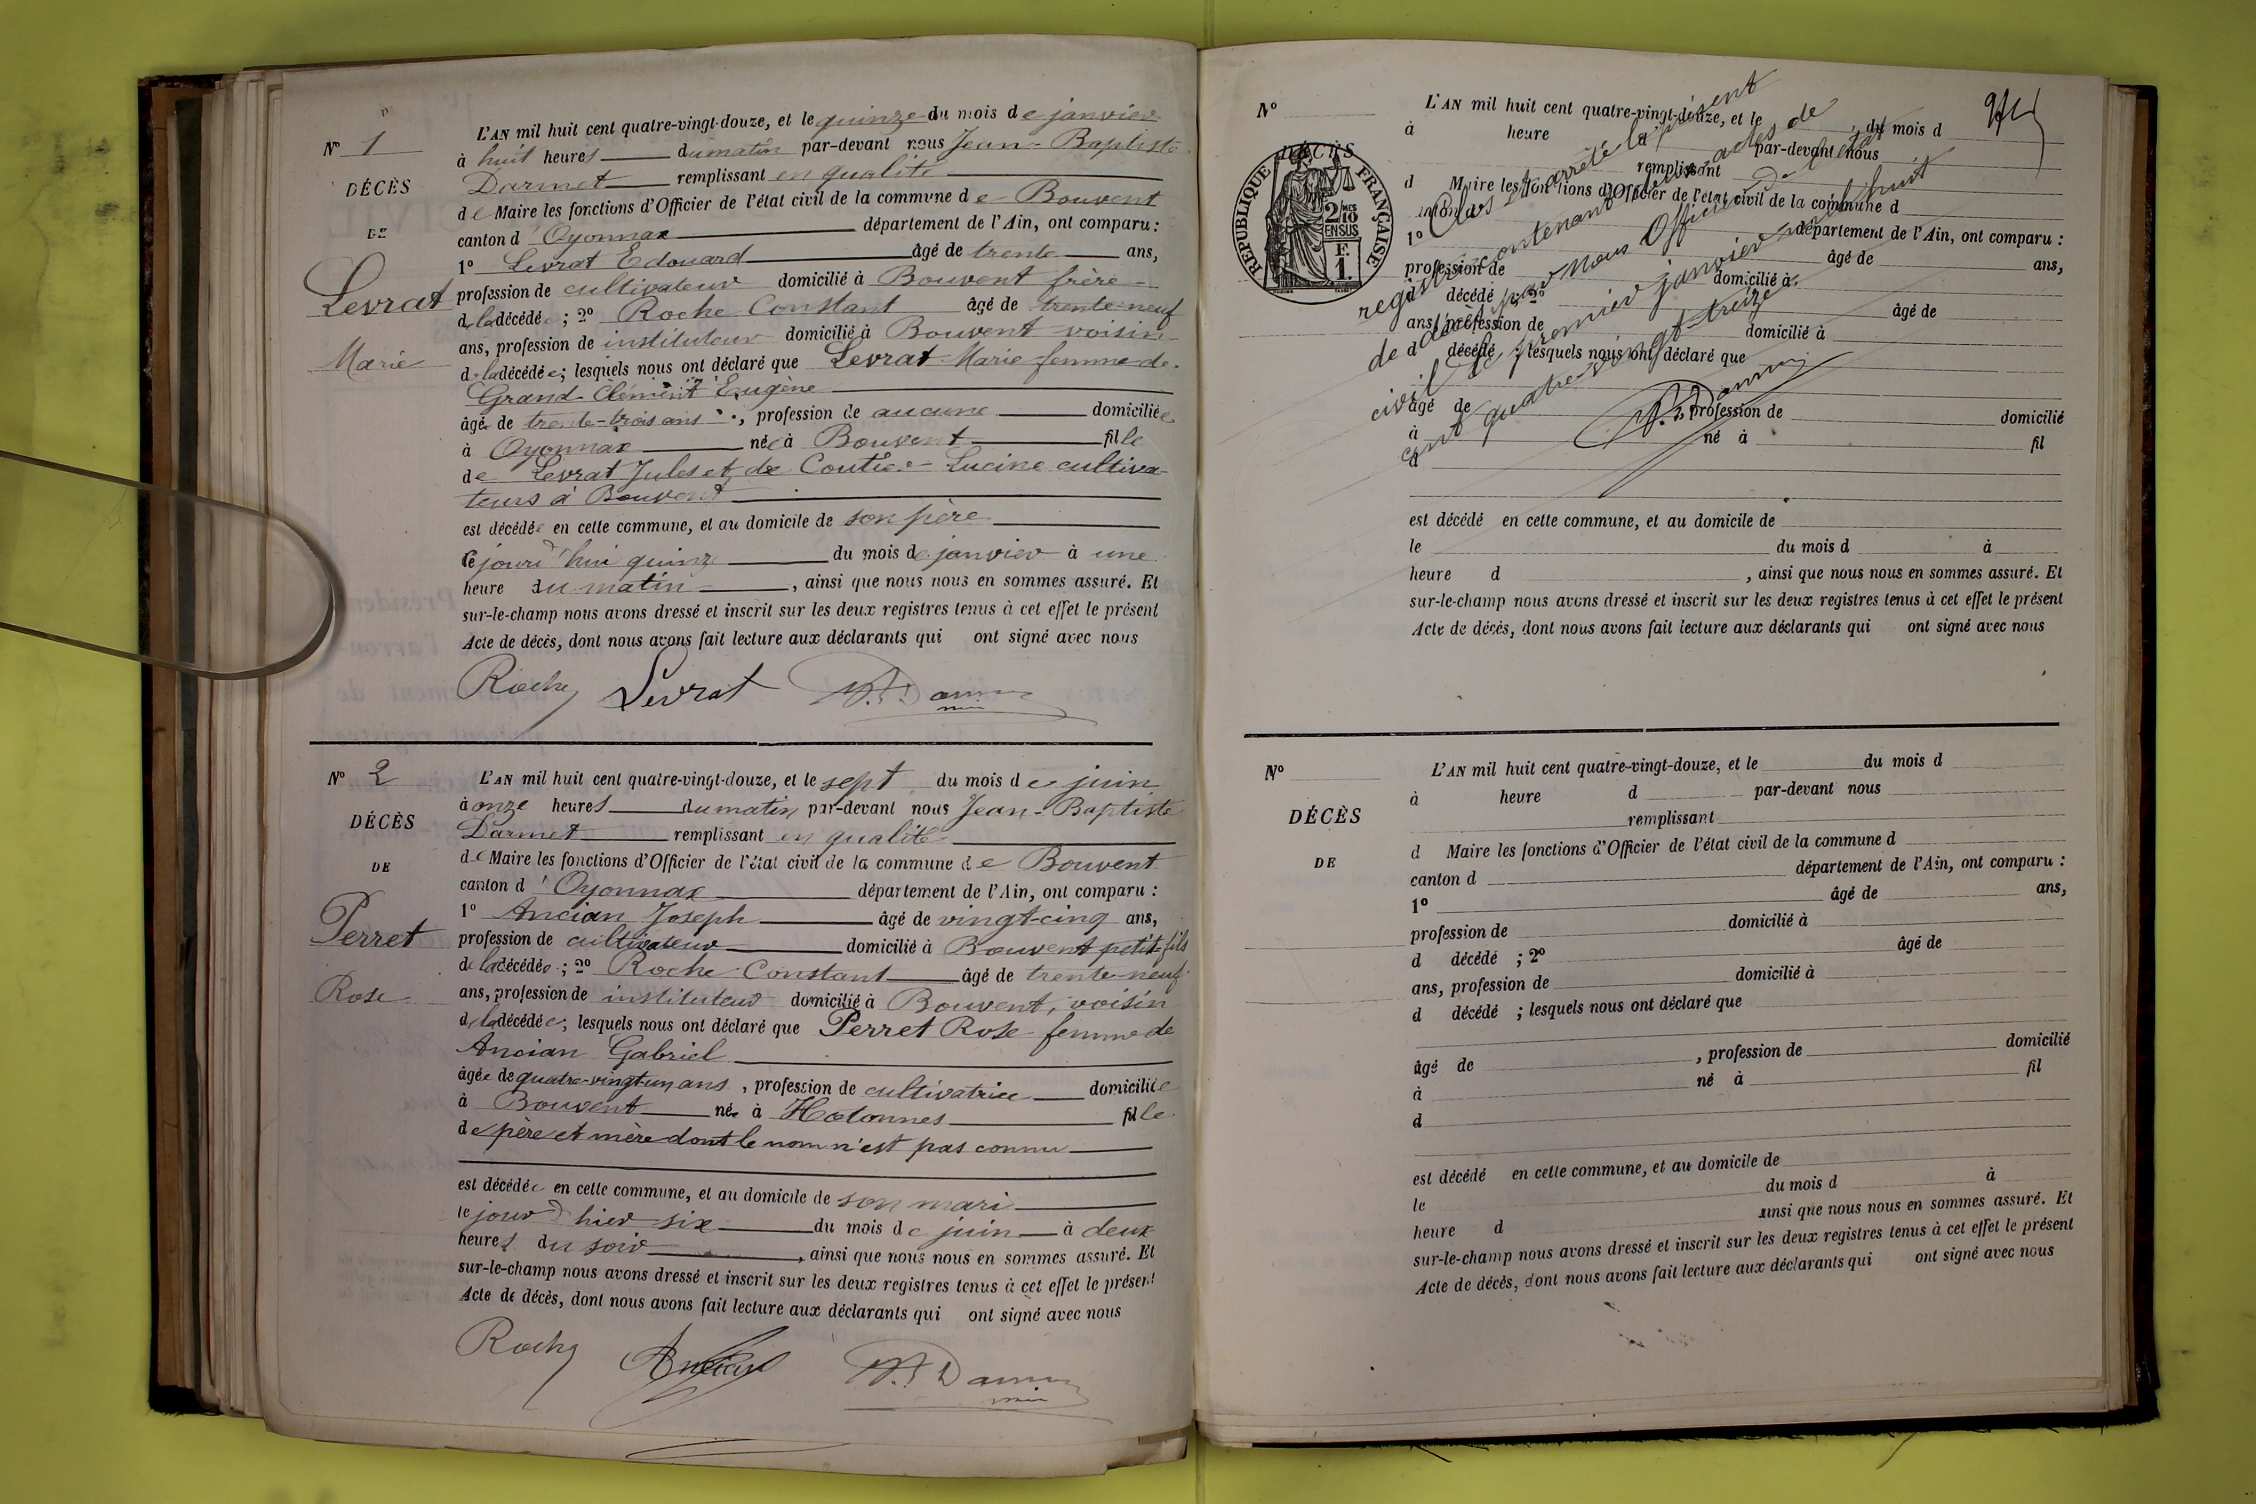 N° 1
DÉCÈS
DE
Levrat
Marie
L'AN mil huit cent quatre-vingt-douze, et le quinze du mois de janvier
à huit heures du matin par-devant nous Jean-Baptiste
Darmet remplissant en qualité
de Maire les fonctions d'Officier de l'état civil de la commune de Bouvent
canton d'Oyonnax département de l'Ain, ont comparu :
1° Levrat Edouard âgé de trente ans,
profession de cultivateur domicilié à Bouvent frère
de la décédée ; 2° Roche Constant âgé de trente-neuf
ans, profession de instituteur domicilié à Bouvent voisin
de la décédée ; lesquels nous ont déclaré que Levrat Marie femme de
Grand-Clément Eugène
âgée de trente-trois ans, profession de aucune domiciliée
à Oyonnax née à Bouvent fille
de Levrat Jules et de Coutier Lucine cultiva-
teurs à Bouvent
est décédée en cette commune, et au domicile de son père
le jourd'hui quinze du mois de janvier à une
heure du matin, ainsi que nous nous en sommes assuré. Et
sur-le-champ nous avons dressé et inscrit sur les deux registres tenus à cet effet le présent
Acte de décès, dont nous avons fait lecture aux déclarants qui ont signé avec nous
Roche Levrat
N° 2
DÉCÈS
DE
Perret
Rose
L'AN mil huit cent quatre-vingt-douze, et le sept du mois de juin
à onze heures du matin par-devant nous Jean-Baptiste
Darmet remplissant en qualité
de Maire les fonctions d'Officier de l'état civil de la commune de Bouvent
canton d'Oyonnax département de l'Ain, ont comparu :
1° Ancian Joseph âgé de vingt-cinq ans,
profession de cultivateur domicilié à Bouvent petit-fils
de la décédée ; 2° Roche Constant âgé de trente-neuf
ans, profession de instituteur domicilié à Bouvent, voisin
de la décédée ; lesquels nous ont déclaré que Perret Rose femme de
Ancian Gabriel
âgée de quatre-vingt-un ans, profession de cultivatrice domiciliée
à Bouvent née à Hotonnes fille
de père et mère dont le nom n'est pas connu
est décédée en cette commune, et au domicile de son mari
le jour d'hier six du mois de juin à deux
heures du soir, ainsi que nous nous en sommes assuré. Et
sur-le-champ nous avons dressé et inscrit sur les deux registres tenus à cet effet le présent
Acte de décès, dont nous avons fait lecture aux déclarants qui ont signé avec nous
Roche Ancian
N°
DÉCÈS
RÉPUBLIQUE FRANÇAISE
2/10 EN SUS
F. 1.
L'AN mil huit cent quatre-vingt-douze, et le du mois d
à heure d par-devant nous
remplissant
d Maire les fonctions d'Officier de l'état civil de la commune d
canton d département de l'Ain, ont comparu :
1° âgé de ans,
profession de domicilié à
d décédé ; 2° âgé de
ans, profession de domicilié à
d décédé ; lesquels nous ont déclaré que
âgé de , profession de domicilié
à né à fil
d
est décédé en cette commune, et au domicile de
le du mois d à
heure d , ainsi que nous nous en sommes assuré. Et
sur-le-champ nous avons dressé et inscrit sur les deux registres tenus à cet effet le présent
Acte de décès, dont nous avons fait lecture aux déclarants qui ont signé avec nous
Clos et arrêté le présent
registre contenant deux actes de
décès par nous Officier de l'état
civil le premier janvier mil huit
cent quatre-vingt-treize
N°
DÉCÈS
DE
L'AN mil huit cent quatre-vingt-douze, et le du mois d
à heure d par-devant nous
remplissant
d Maire les fonctions d'Officier de l'état civil de la commune d
canton d département de l'Ain, ont comparu :
1° âgé de ans,
profession de domicilié à
d décédé ; 2° âgé de
ans, profession de domicilié à
d décédé ; lesquels nous ont déclaré que
âgé de , profession de domicilié
à né à fil
d
est décédé en cette commune, et au domicile de
le du mois d à
heure d ainsi que nous nous en sommes assuré. Et
sur-le-champ nous avons dressé et inscrit sur les deux registres tenus à cet effet le présent
Acte de décès, dont nous avons fait lecture aux déclarants qui ont signé avec nous